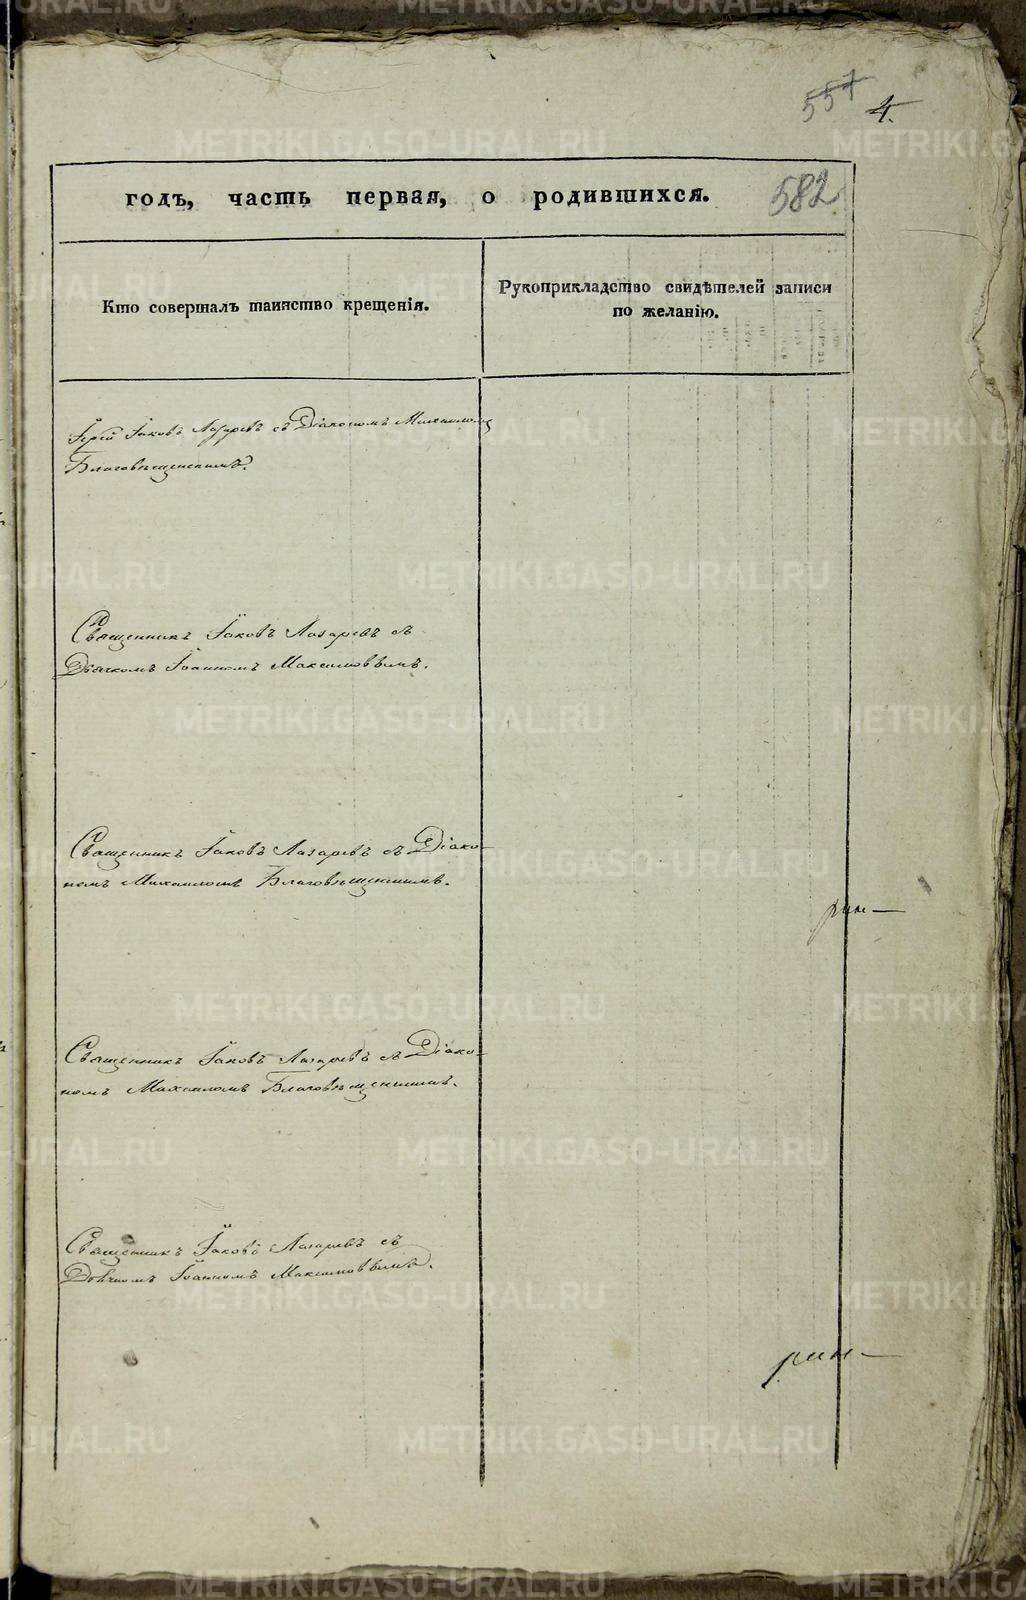 557 4.
582
годъ, часть первая, о родившихся.
Кто совершалъ таинство крещенія.
Рукоприкладство свидѣтелей записи
по желанію.
Іерей Іаковъ Лазаревъ съ Діакономъ Михаиломъ
Благовѣщенскимъ.
Священникъ Іаковъ Лазаревъ съ
Дьячкомъ Іоанномъ Максимовымъ.
Священникъ Іаковъ Лазаревъ съ Діако-
номъ Михаиломъ Благовѣщенскимъ.
Священникъ Іаковъ Лазаревъ съ Діако-
номъ Михаиломъ Благовѣщенскимъ.
Священникъ Іаковъ Лазаревъ съ
Дьячкомъ Іоанномъ Максимовымъ.
METRIKI.GASO-URAL.RU